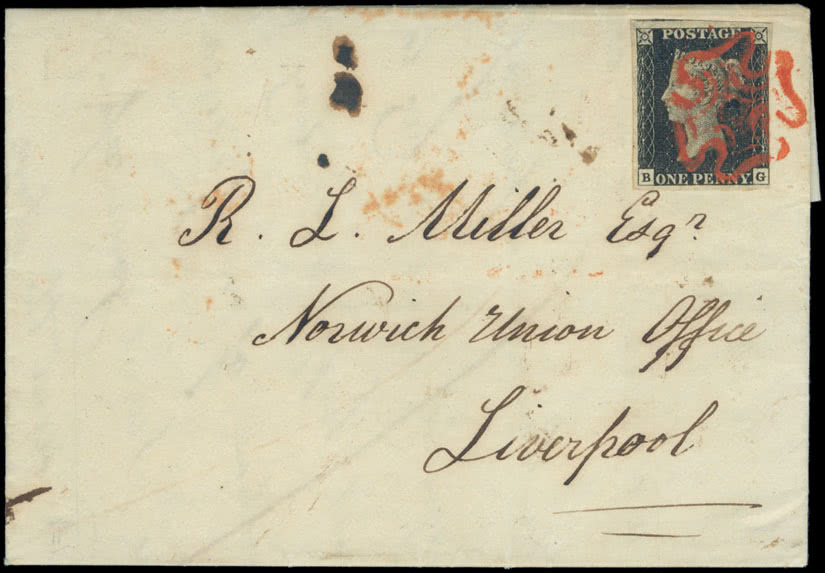 POSTAGE
B G
ONE PENNY.
R. L. Miller Esqr.
Norwich Union Office
Liverpool